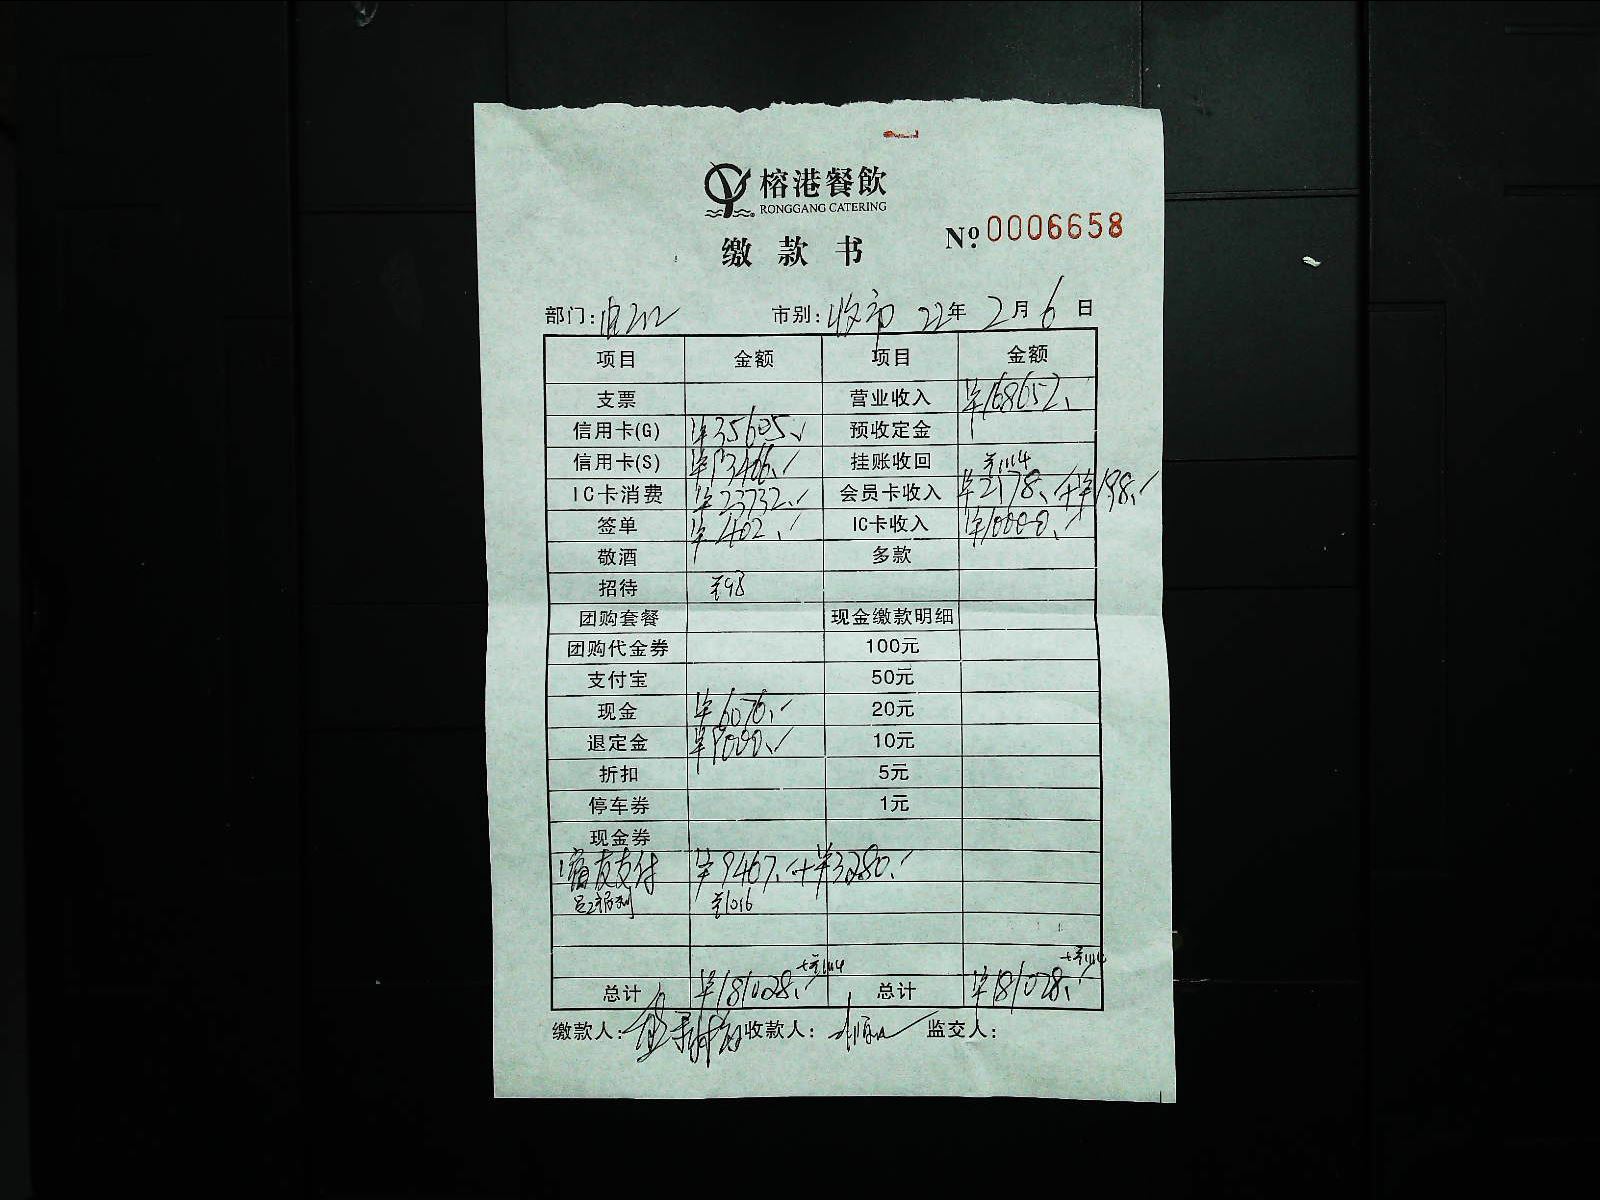 榕港餐飲
RONGGANG CATERING
缴款书
Nº 0006658
部门: 市别: 收市 22年 2月 6日
项目 金额 项目 金额
支票 营业收入 ¥168652.
信用卡(G) ¥35605. 预收定金
信用卡(S) 挂账收回 ¥1114
IC卡消费 ¥23732. 会员卡收入 ¥2178. +¥198.
签单 ¥402. IC卡收入 ¥10000.
敬酒 多款
招待 ¥98
团购套餐 现金缴款明细
团购代金券 100元
支付宝 50元
现金 ¥6076. 20元
退定金 10元
折扣 5元
停车券 1元
现金券
支付 ¥9467. +¥3280.
¥1016
+¥1114 +¥1114
总计 ¥181028. 总计 ¥181028.
缴款人: 收款人: 监交人: